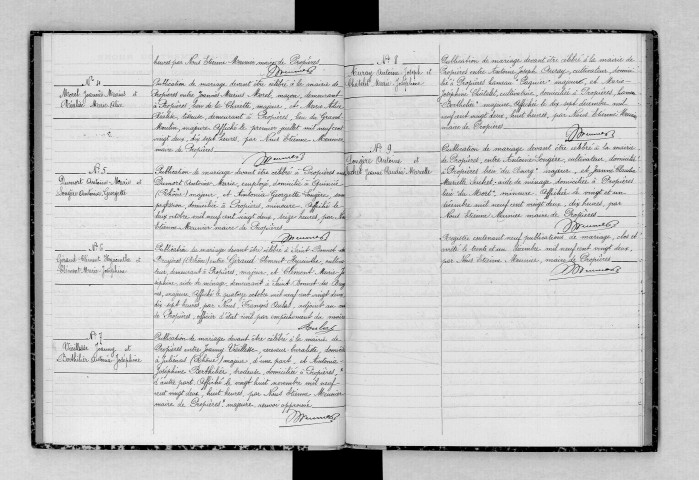 heures par Nous Etienne Meunier maire de Propières
Meunier
N° 4
Morel Joannès Marius et
Marie Alice
Publication de mariage devant être célébré à la mairie de
Propières entre Joannès Marius Morel, maçon, demeurant
à Propières lieu de la majeur, et Marie Alice
demeurant à Propières, lieu du Grand
Moulin, majeure. Affiché le premier juillet mil neuf cent
vingt deux, dix sept heures, par Nous Etienne Meunier
maire de Propières
Meunier
N° 5
Dumort Antoine Marie et
Longère Antonia Georgette
Publication de mariage devant être célébré à Propières entre
Dumort Antoine Marie, employé, domicilié à
(Rhône) majeur, et Antonia Georgette Longère, sans
profession, domiciliée à Propières, mineure. Affiché le
deux octobre mil neuf cent vingt deux, seize heures, par Nous
Etienne Meunier maire de Propières
Meunier
N° 6
Giraud Climant Hyacinthe et
Clément Marie Joséphine
Publication de mariage devant être célébré à Saint Bonnet des
Bruyères (Rhône) entre Giraud Climant Hyacinthe, cultiva
teur, demeurant à Propières, majeur, et Clément Marie Jo
séphine, aide de ménage, demeurant à Saint Bonnet des Bruy
ères, majeure. Affiché le quatorze octobre mil neuf cent vingt deux
dix sept heures, par Nous, François Aubert, adjoint au maire
de Propières, officier d'état civil par empêchement du maire
Aubert
N° 7
Vieillesse Joanny et
Berthilier Antonia Joséphine
Publication de mariage devant être célébré à la mairie de
Propières entre Joanny Vieillesse, buraliste, domicilié
à Juliénas (Rhône) majeur d'une part, et Antonia
Joséphine Berthilier, domiciliée à Propières,
d'autre part. Affiché le vingt huit novembre mil neuf
cent vingt deux, huit heures, par Nous Etienne Meunier
maire de Propières majeure, renvoi approuvé
Meunier
N° 8
Auray Antoine Joseph et
Châtelet Marie Joséphine
Publication de mariage devant être célébré à la mairie de
Propières entre Antoine Joseph Auray, cultivateur, domici
lié à Propières hameau majeur, et Marie
Joséphine Châtelet, cultivatrice, domiciliée à Propières hameau
majeure. Affiché le dix sept décembre, mil
neuf cent vingt deux, huit heures, par Nous Etienne Meunier
maire de Propières
Meunier
N° 9
Longère Antoine et
Jeanne Claudia Marcelle
Publication de mariage devant être célébré à la mairie
de Propières, entre Antoine Longère, cultivateur, domicilié
à Propières lieu "du Bourg" majeur, et Jeanne Claudia
Marcelle aide de ménage, domiciliée à Propières
lieu mineure. Affiché le vingt et un
décembre mil neuf cent vingt deux, dix heures, par
Nous Etienne Meunier maire de Propières
Meunier
Registre contenant neuf publications de mariage, clos et
arrêté le trente et un décembre mil neuf cent vingt deux,
par Nous Etienne Meunier, maire de Propières
Meunier